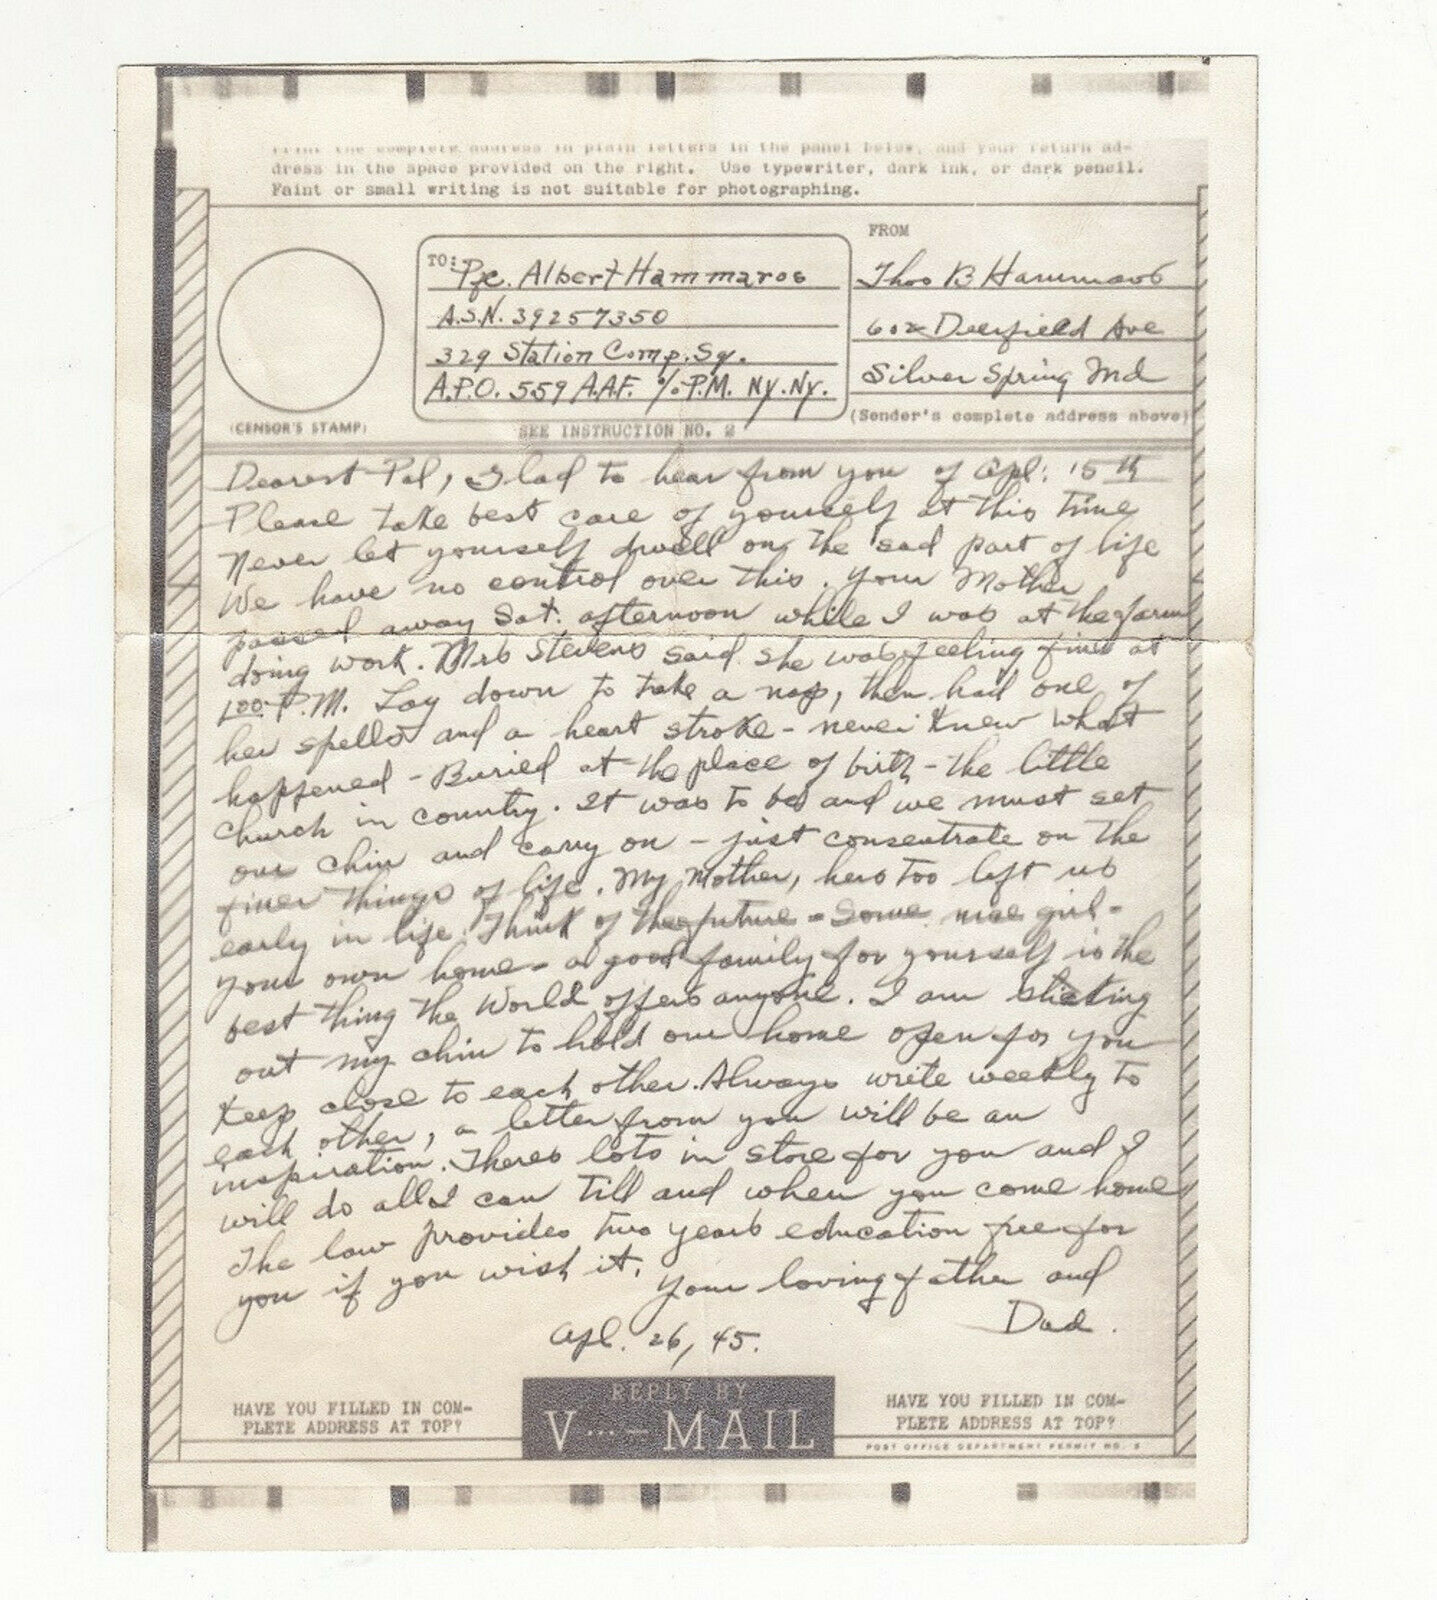 Print the complete address in plain letters in the panel below, and your return ad-
dress in the space provided on the right. Use typewriter, dark ink, or dark pencil.
Faint or small writing is not suitable for photographing.
(CENSOR'S STAMP)
TO: Pfc. Albert Hammaros
A.S.N. 39257350
329 Station Comp. Sq.
A.P.O. 559 A.A.F. c/o P.M. NY. NY.
SEE INSTRUCTION NO. 2
FROM
Thos B Hammaros
602 Deerfield Ave
Silver Spring Md
(Sender's complete address above)
Dearest Pal, Glad to hear from you of Apl: 15th
Please take best care of yourself at this time
Never let yourself dwell on the sad part of life
We have no control over this. Your Mother
passed away Sat. afternoon while I was at the farm
doing work. Mrs Stevens said she was feeling fine at
1:00 P.M. Lay down to take a nap, then had one of
her spells and a heart stroke - never knew what
happened - Buried at the place of birth - the little
church in country. It was to be and we must set
our chin and carry on - just consentrate on the
finer things of life. My Mother, hers too left us
early in life. Think of the future - some nice girl -
your own home - a good family for yourself is the
best thing the World offers anyone. I am sticking
out my chin to hold our home open for you
Keep close to each other. Always write weekly to
each other, a letter from you will be an
inspiration. Theres lots in store for you and I
will do all I can till and when you come home
The law provides two years education free for
you if you wish it.
Your loving father and
Dad.
Apl. 26, 45.
HAVE YOU FILLED IN COM-
PLETE ADDRESS AT TOP?
REPLY BY
V···—MAIL
HAVE YOU FILLED IN COM-
PLETE ADDRESS AT TOP?
POST OFFICE DEPARTMENT PERMIT NO. 5